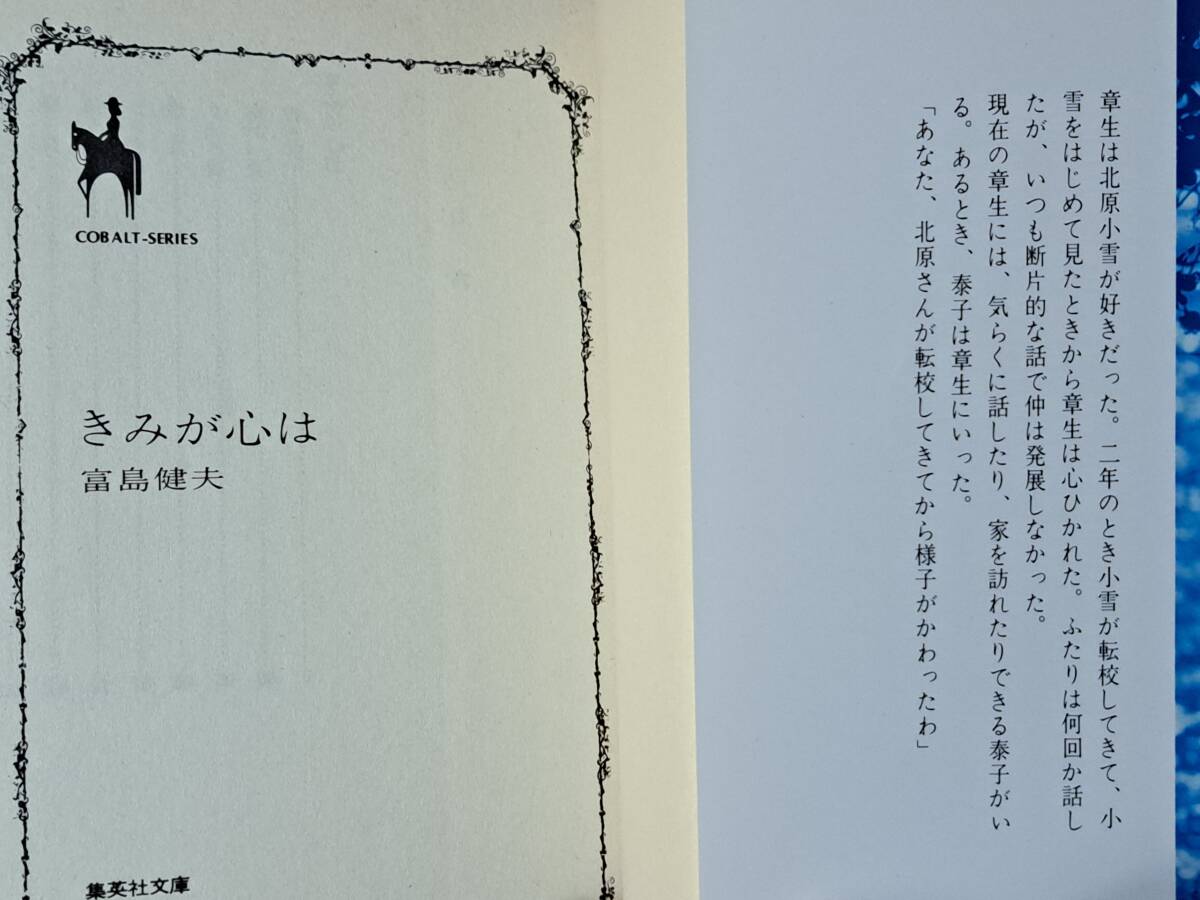 章生は北原小雪が好きだった。二年のとき小雪が転校してきて、小
雪をはじめて見たときから章生は心ひかれた。ふたりは何回か話し
たが、いつも断片的な話で仲は発展しなかった。
現在の章生には、気らくに話したり、家を訪れたりできる泰子がい
る。あるとき、泰子は章生にいった。
「あなた、北原さんが転校してきてから様子がかわったわ」
COBALT-SERIES
きみが心は
富島健夫
集英社文庫